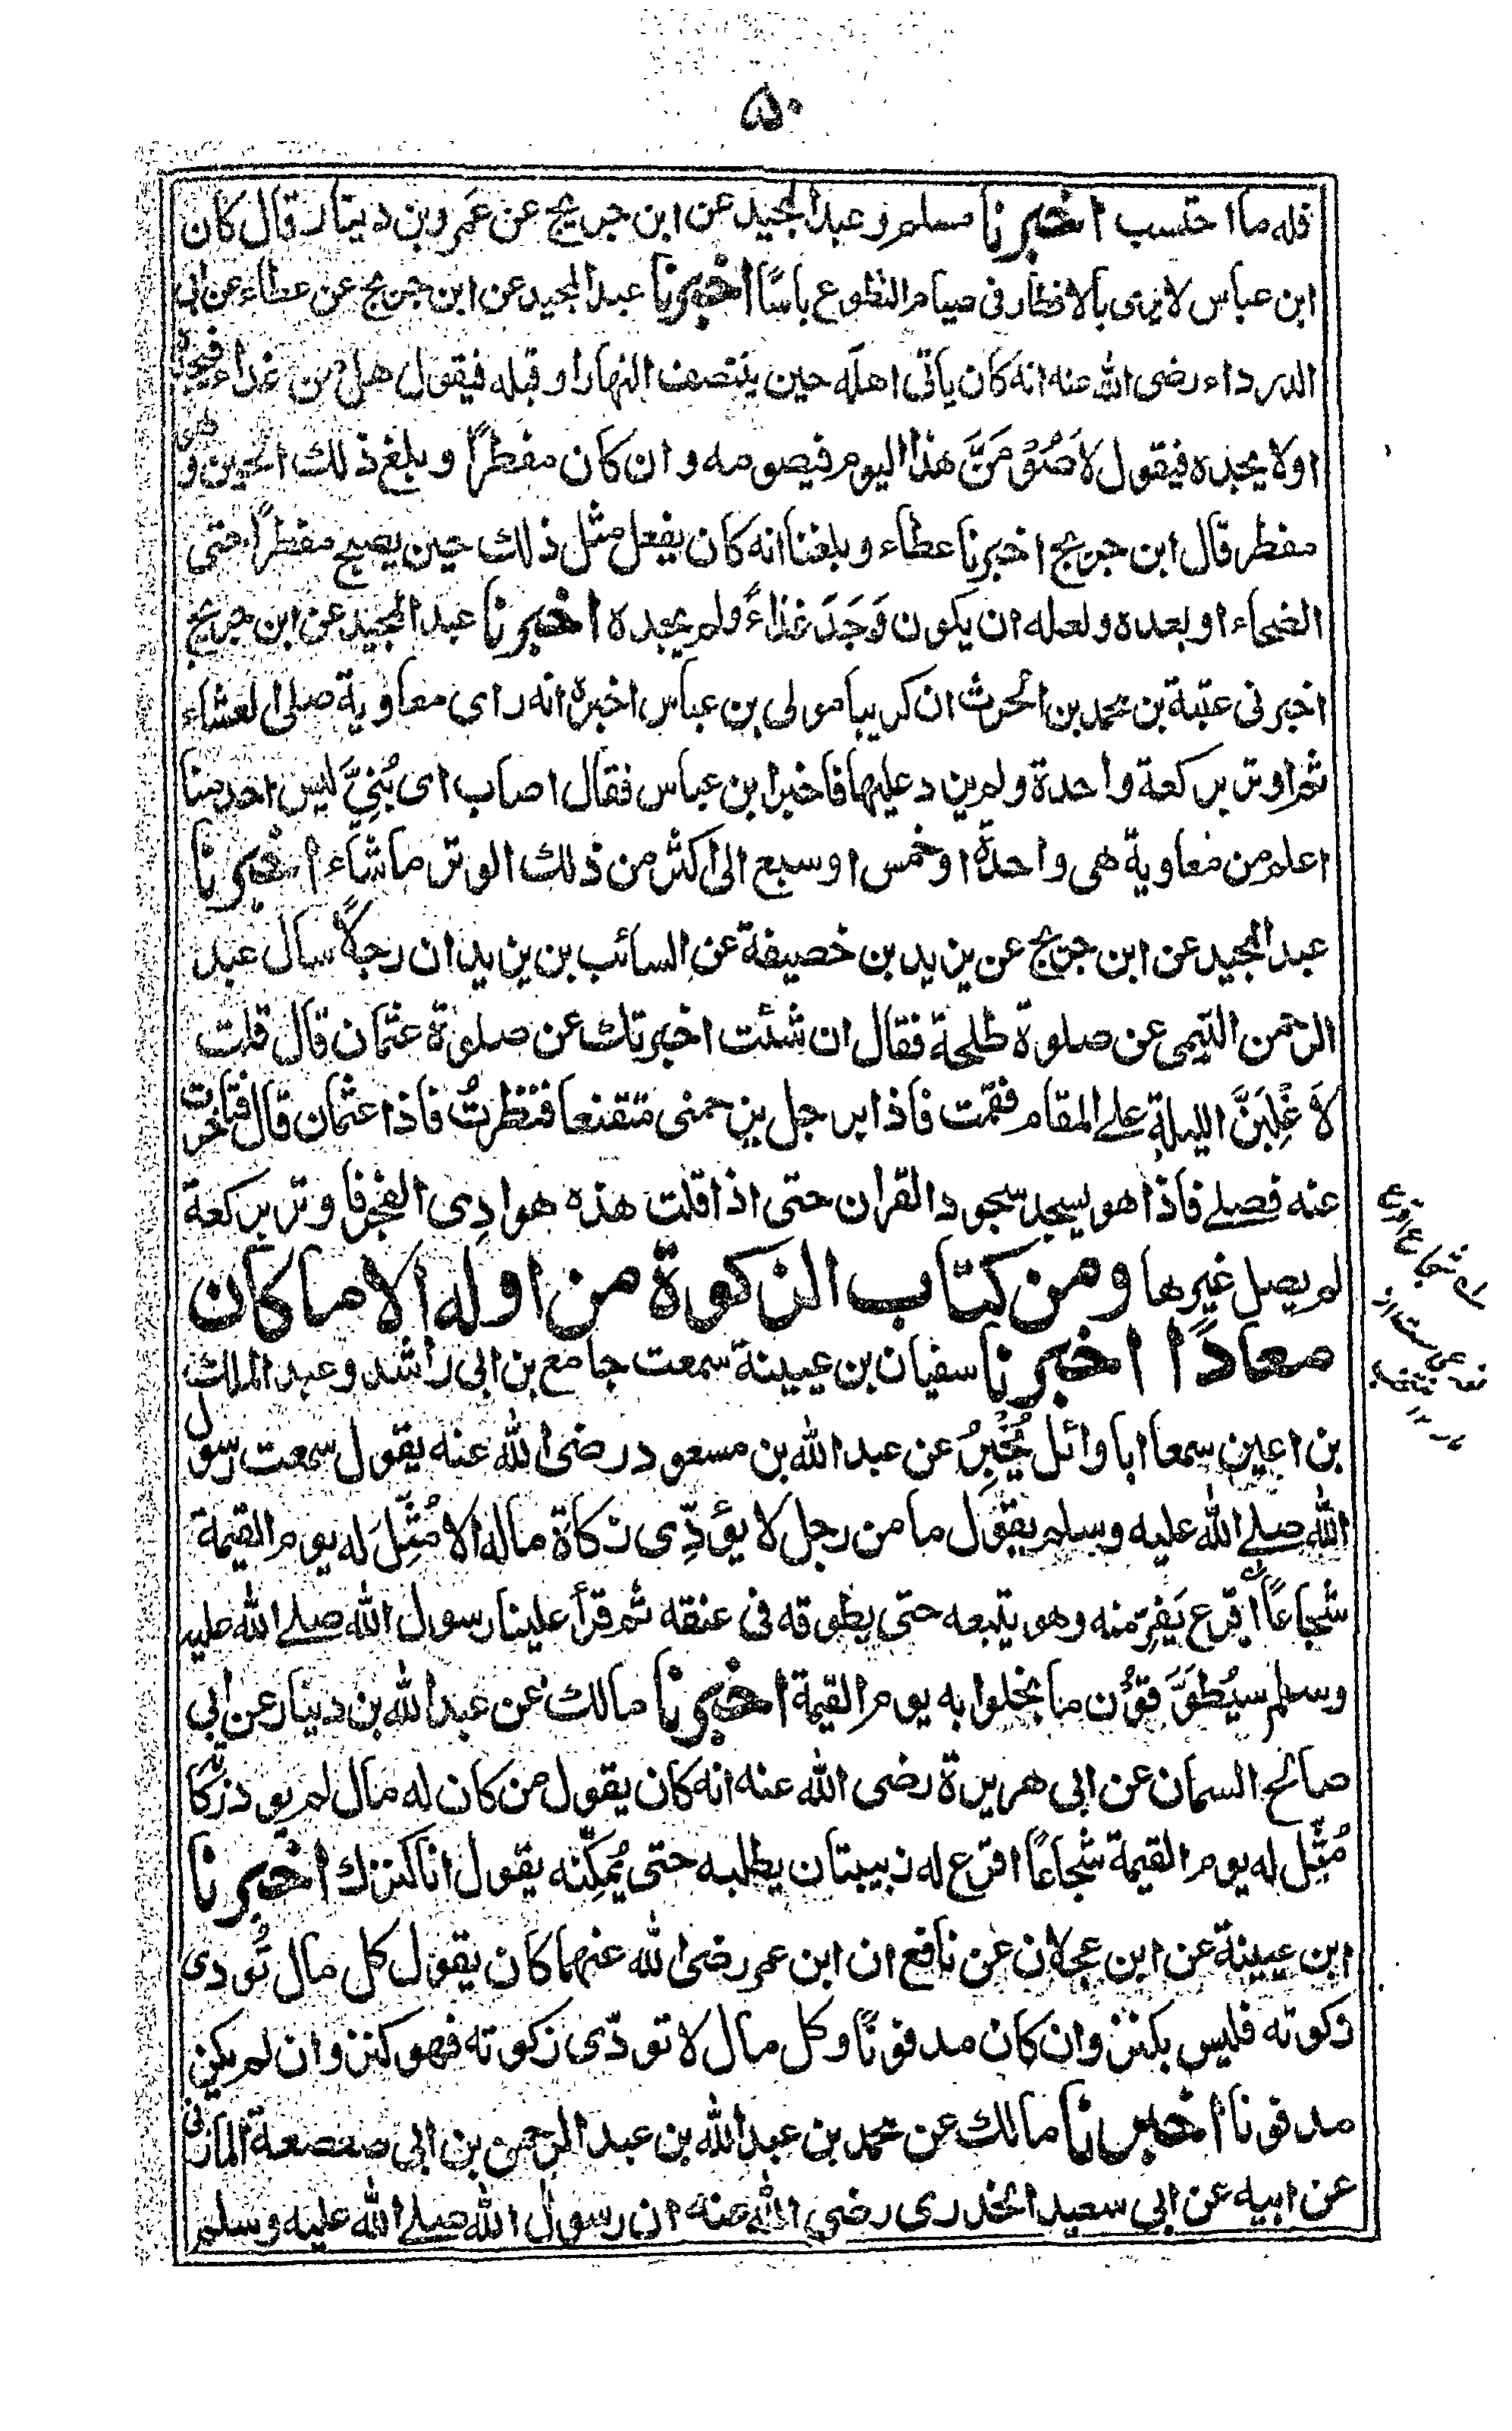 ۵۰
فله ما احتسب اخبرنا مسلم وعبد المجيد عن ابن جريج عن عمرو بن دينار قال كان
ابن عباس لا يرى بالافطار فى صيام التطوع باسًا اخبرنا عبد المجيد عن ابن جريج عن عطاء عن ابى
الدرداء رضى الله عنه انه كان ياتى اهله حين ينتصف النهار او قبله فيقول هل من غداء فيجده
او لا يجده فيقول لاَصُوْمَنَّ هذا اليوم فيصومه وان كان مفطرًا وبلغ ذلك الحين وهو
مفطر قال ابن جريج اخبرنا عطاء وبلغنا انه كان يفعل مثل ذلك حين يصبح مفطرًا حتى
الضحاء او بعده ولعله ان يكون وَجَدَ غذاءً ولم يجده اخبرنا عبد المجيد عن ابن جريج
اخبرنى عتبة بن محمد بن الحرث ان كريبا مولى بن عباس اخبره انه راى معاوية صلى العشاء
ثم اوتر بركعة واحدة ولم يزد عليها فاخبر ابن عباس فقال اصاب اى بُنَيَّ ليس احد منا
اعلم من معاوية هى واحدة او خمس او سبع الى اكثر من ذلك الوتر ما شاء اخبرنا
عبد المجيد عن ابن جريج عن يزيد بن خصيفة عن السائب بن يزيد ان رجلاً سال عبد
الرحمن التيمى عن صلوة طلحة فقال ان شئت اخبرتك عن صلوة عثمان قال قلت
لاَغْلِبَنَّ الليلة على المقام فقمت فاذا برجل يزحمنى متقنعا فنظرتُ فاذا عثمان قال فتاخرت
عنه فصلى فاذا هو يسجد سجود القران حتى اذا قلت هذه هوادِى الفجر فاوتر بركعة
لم يصل غيرها ومن كتاب الزكوة من اوله الا ما كان
معادًا اخبرنا سفيان بن عيينة سمعت جامع بن ابى راشد وعبد الملك
بن اعين سمعا ابا وائل يُخْبِرُ عن عبد الله بن مسعود رضى الله عنه يقول سمعت رسول
الله صلى الله عليه وسلم يقول ما من رجل لا يؤدِّى زكاة ماله الا مُثِّلَ له يوم القيمة
شجاعًا اقرع يَفِرّ منه وهو يتبعه حتى يطوقه فى عنقه ثم قرأ علينا رسول الله صلى الله عليه
وسلم سيُطَوَّقُوْن ما بخلوا به يوم القيمة اخبرنا مالك عن عبد الله بن دينار عن ابى
صالح السمان عن ابى هريرة رضى الله عنه انه كان يقول من كان له مال لم يود زكاته
مُثِّل له يوم القيمة شجاعًا اقرع له زبيبتان يطلبه حتى يُمَكِّنه يقول انا كنزك اخبرنا
ابن عيينة عن ابن عجلان عن نافع ان ابن عمر رضى الله عنهما كان يقول كل مال تُودى
زكوته فليس بكنز وان كان مدفونًا وكل مال لا تودّى زكوته فهو كنز وان لم يكن
مدفونا اخبرنا مالك عن محمد بن عبد الله بن عبد الرحمن بن ابى صعصعة المازنى
عن ابيه عن ابى سعيد الخدرى رضى الله عنه ان رسول الله صلى الله عليه وسلم